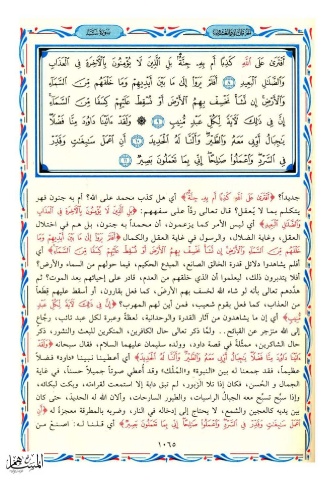 سورة سبأ
أَفْتَرَىٰ عَلَى ٱللَّهِ كَذِبًا أَم بِهِۦ جِنَّةٌۢ بَلِ ٱلَّذِينَ لَا يُؤْمِنُونَ بِٱلْءَاخِرَةِ فِى ٱلْعَذَابِ
وَٱلضَّلَٰلِ ٱلْبَعِيدِ ٨ أَفَلَمْ يَرَوْا۟ إِلَىٰ مَا بَيْنَ أَيْدِيهِمْ وَمَا خَلْفَهُم مِّنَ ٱلسَّمَآءِ
وَٱلْأَرْضِ إِن نَّشَأْ نَخْسِفْ بِهِمُ ٱلْأَرْضَ أَوْ نُسْقِطْ عَلَيْهِمْ كِسَفًا مِّنَ ٱلسَّمَآءِ
إِنَّ فِى ذَٰلِكَ لَءَايَةً لِّكُلِّ عَبْدٍ مُّنِيبٍ ٩ وَلَقَدْ ءَاتَيْنَا دَاوُۥدَ مِنَّا فَضْلًا
يَٰجِبَالُ أَوِّبِى مَعَهُۥ وَٱلطَّيْرَ وَأَلَنَّا لَهُ ٱلْحَدِيدَ ١٠ أَنِ ٱعْمَلْ سَٰبِغَٰتٍ وَقَدِّرْ
فِى ٱلسَّرْدِ وَٱعْمَلُوا۟ صَٰلِحًا إِنِّى بِمَا تَعْمَلُونَ بَصِيرٌ ١١
جديداً؟ ﴿أَفْتَرَىٰ عَلَى ٱللَّهِ كَذِبًا أَم بِهِۦ جِنَّةٌۢ﴾ أي هل كذب محمد على الله؟ أم به جنون فهو
يتكلم بما لا يُعقل؟ قال تعالى ردًّا على سفههم: ﴿بَلِ ٱلَّذِينَ لَا يُؤْمِنُونَ بِٱلْءَاخِرَةِ فِى ٱلْعَذَابِ
وَٱلضَّلَٰلِ ٱلْبَعِيدِ﴾ أي ليس الأمر كما يزعمون، أن محمداً به جنون، بل هم في اختلال
العقل، وغاية الضلال، والرسول في غاية العقل والكمال ﴿أَفَلَمْ يَرَوْا۟ إِلَىٰ مَا بَيْنَ أَيْدِيهِمْ وَمَا
خَلْفَهُم مِّنَ ٱلسَّمَآءِ وَٱلْأَرْضِ إِن نَّشَأْ نَخْسِفْ بِهِمُ ٱلْأَرْضَ أَوْ نُسْقِطْ عَلَيْهِمْ كِسَفًا مِّنَ ٱلسَّمَآءِ﴾ أي
أفلم يشاهدوا دلائل قدرة الخالق الصانع، المبدع الحكيم، فيما حولهم من السماء والأرض؟
أفلا يتدبرون ذلك، ليعلموا أن الذي خلقهم من العدم، قادر على إحيائهم بعد الموت؟ ثم
هدَّدهم تعالى بأنه لو شاء الله لخسف بهم الأرض، كما فعل بقارون، أو أسقط عليهم قِطعاً
من العذاب، كما فعل بقوم شعيب، فمن أين لهم المهرب؟ ﴿إِنَّ فِى ذَٰلِكَ لَءَايَةً لِّكُلِّ عَبْدٍ
مُّنِيبٍ﴾ أي إن ما يشاهدون من آثار القدرة والوحدانية، لعظةً وعبرة لكل عبد تائب، رجَّاع
إلى الله منزجر عن القبائح.. ولمَّا ذكر تعالى حال الكافرين، المنكرين للبعث والنشور، ذكر
حال الشاكرين، ممثَّلة في قصة داود، وولده سليمان عليهما السلام، فقال سبحانه ﴿وَلَقَدْ
ءَاتَيْنَا دَاوُۥدَ مِنَّا فَضْلًا يَٰجِبَالُ أَوِّبِى مَعَهُۥ وَٱلطَّيْرَ وَأَلَنَّا لَهُ ٱلْحَدِيدَ﴾ أي أعطينا نبينا «داود» فضلاً
عظيماً، فقد جمعنا له بين «النبوة» و«المُلك» وقد أُعطي صوتاً جميلاً حسناً، في غاية
الجمال و الحُسن، فكان إذا تلا الزبور، لم تبق دابة إلا استمعت لقراءته، وبكت لبكائه،
وإذا سبَّح تسبِّح معه الجبالُ الراسيات، والطيور السارحات، وألان الله له الحديد، حتى كان
بين يديه كالعجين والشمع، لا يحتاج إلى إدخاله في النار، وضربه بالمطرقة معجزةً له ﴿أَنِ
ٱعْمَلْ سَٰبِغَٰتٍ وَقَدِّرْ فِى ٱلسَّرْدِ وَٱعْمَلُوا۟ صَٰلِحًا إِنِّى بِمَا تَعْمَلُونَ بَصِيرٌ﴾ أي قلنا له: اصنع من
١٠٦٥